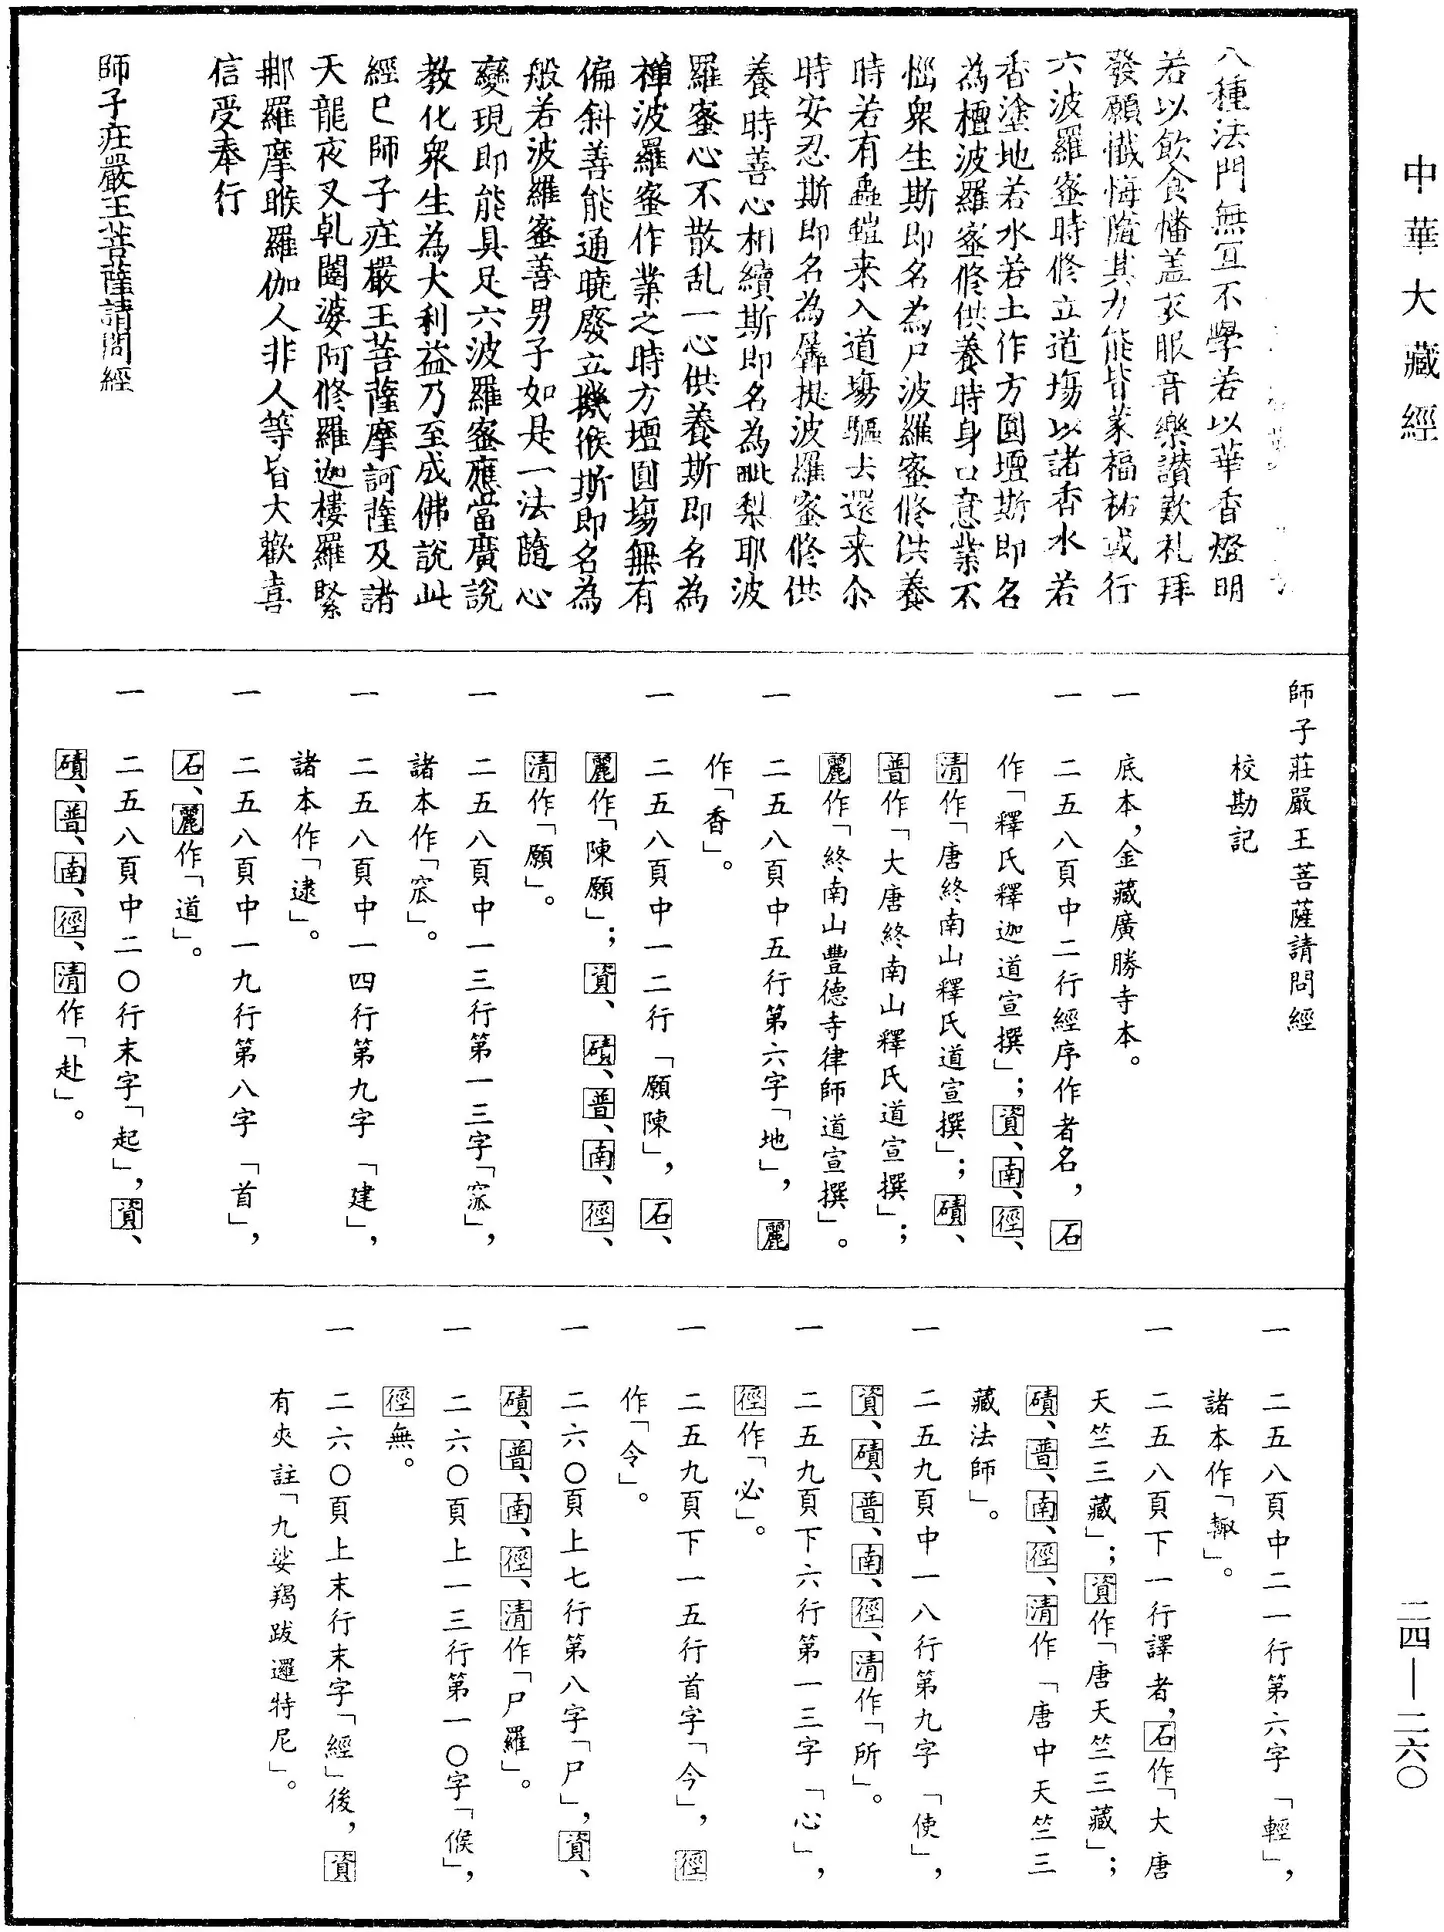 中華大藏經
二四—二六〇
八種法門無宜不學若以華香燈明
若以飲食幡盖衣服音樂讃歎礼拜
發願懺悔隨其力能皆蒙福祐或行
六波羅蜜時修立道場以諸香水若
香塗地若水若土作方圓壇斯即名
為檀波羅蜜修供養時身口意業不
惱衆生斯即名為尸波羅蜜修供養
時若有蟲䗍来入道場驅去還来尒
時安忍斯即名為羼提波羅蜜修供
養時善心相續斯即名為毗梨耶波
羅蜜心不散乱一心供養斯即名為
禅波羅蜜作業之時方壇圓場無有
偏斜善能通曉廢立機候斯即名為
般若波羅蜜善男子如是一法隨心
變現即能具足六波羅蜜應當廣說
教化衆生為大利益乃至成佛說此
經已師子莊嚴王菩薩摩訶薩及諸
天龍夜叉乹闥婆阿修羅迦樓羅緊
那羅摩睺羅伽人非人等皆大歡喜
信受奉行
師子莊嚴王菩薩請問經
師子莊嚴王菩薩請問經
校勘記
一 底本，金藏廣勝寺本。
一 二五八頁中二行經序作者名，石
作「釋氏釋迦道宣撰」；資、南、徑、
清作「唐終南山釋氏道宣撰」；磧、
普作「大唐終南山釋氏道宣撰」；
麗作「終南山豐德寺律師道宣撰」。
一 二五八頁中五行第六字「地」，麗
作「香」。
一 二五八頁中一二行「願陳」，石、
麗作「陳願」；資、磧、普、南、徑、
清作「願」。
一 二五八頁中一三行第一三字「窊」，
諸本作「窓」。
一 二五八頁中一四行第九字「建」，
諸本作「逮」。
一 二五八頁中一九行第八字「首」，
石、麗作「道」。
一 二五八頁中二〇行末字「起」，資、
磧、普、南、徑、清作「赴」。
一 二五八頁中二一行第六字「輕」，
諸本作「輙」。
一 二五八頁下一行譯者，石作「大唐
天竺三藏」；資作「唐天竺三藏」；
磧、普、南、徑、清作「唐中天竺三
藏法師」。
一 二五九頁中一八行第九字「使」，
資、磧、普、南、徑、清作「所」。
一 二五九頁下六行第一三字「心」，
徑作「必」。
一 二五九頁下一五行首字「今」，徑
作「令」。
一 二六〇頁上七行第八字「尸」，資、
磧、普、南、徑、清作「尸羅」。
一 二六〇頁上一三行第一〇字「候」，
徑無。
一 二六〇頁上末行末字「經」後，資
有夾註「九娑羯跋邏特尼」。